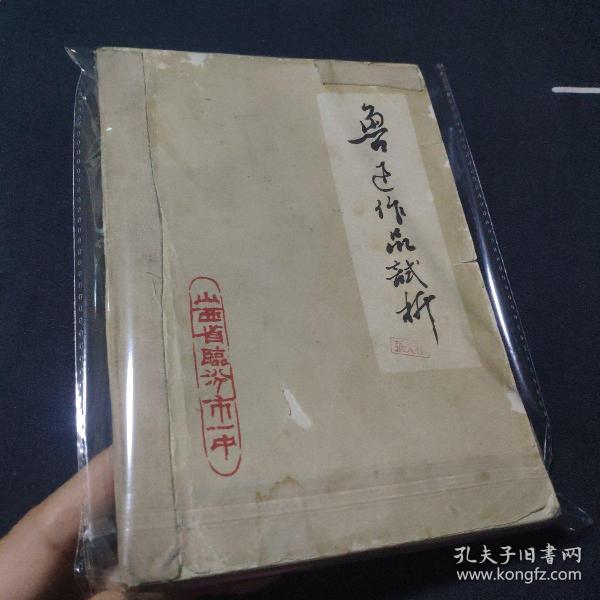 鲁迅作品試析
山西省臨汾市一中
孔夫子旧書网
www.kongfz.com